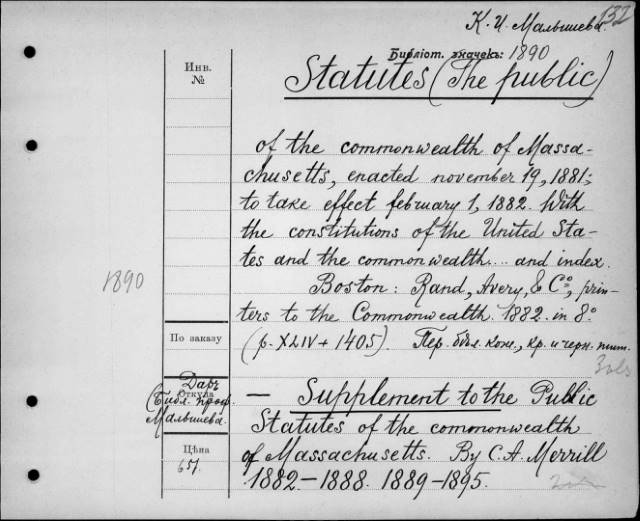 132
К. И. Малышева.
Инв.
№
Бирліот. значекъ: 1890
Statutes (The public)
of the commonwealth of Massa-
chusetts, enacted november 19, 1881;
to take effect february 1, 1882. With
the constitutions of the United Sta-
tes and the commonwealth... and index.
1890
Boston: Rand, Avery, & Cº, prin-
ters to the Commonwealth. 1882. in 8º
По заказу
(p. XLIV + 1405). Пер. бѣл. кож., кр. и черн. тит.
3 vols
Даръ
Откуда
Библ. проф.
Малышева.
— Supplement to the Public
Statutes of the commonwealth
Цѣна
of Massachusetts. By C. A. Merrill
1882–1888. 1889–1895.